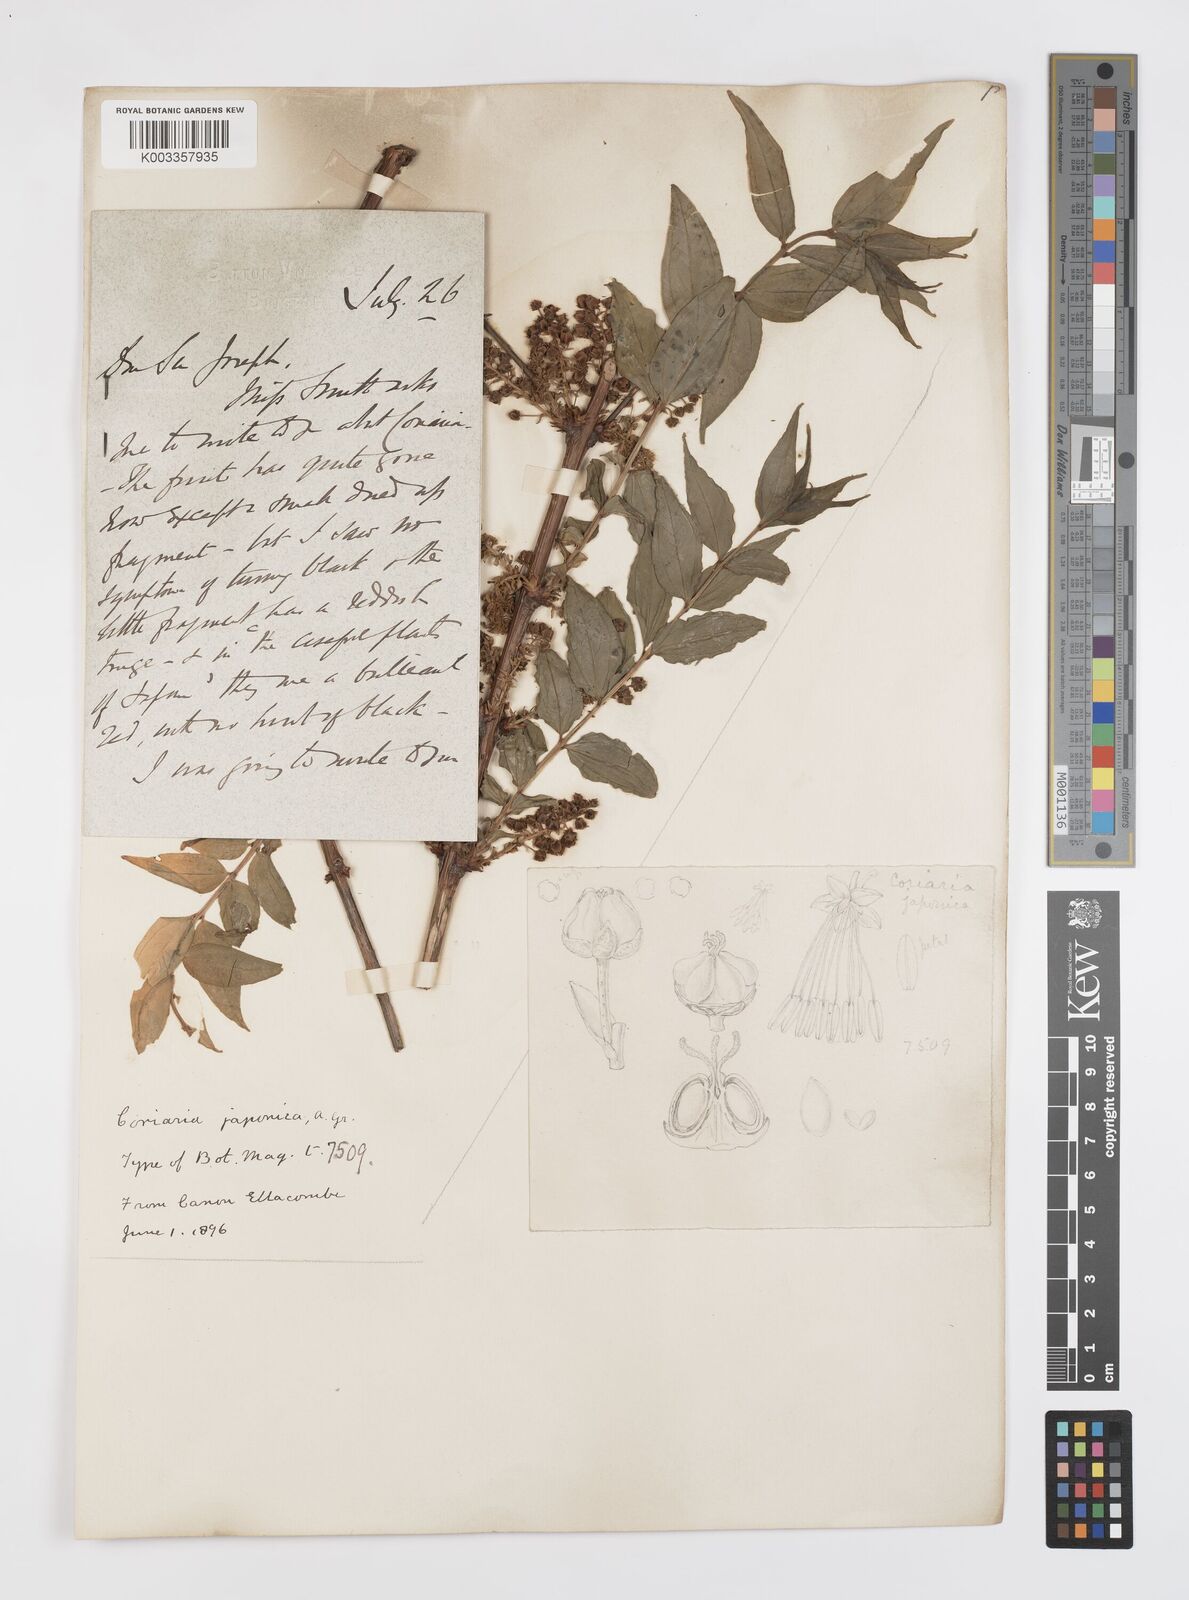 ROYAL BOTANIC GARDENS KEW
K003357935
July. 26
Dr Sir Joseph.
Miss Smith asks
me to write to you abt Coriaria -
- The fruit has quite gone
now except a small dried up
fragment - but I saw no
symptoms of turning black & the
little fragment has a reddish
tinge - & in "the useful plants
of Japan" they are a brilliant
red, with no hint of black -
I was going to write to you
Coriaria
japonica
petal
7509
Coriaria japonica, A. Gr.
Type of Bot. Mag. t. 7509.
From Canon Ellacombe
June 1. 1896
inches
centimeters
Don Williams
M001136
Kew
Royal Botanic Gardens
copyright reserved
0 1 2 3 4 5 6 7 8 9 10
cm